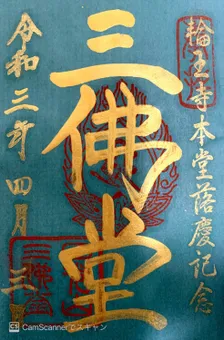 輪王寺本堂落慶記念
三佛堂
令和三年四月三日
三佛堂
CS CamScannerでスキャン